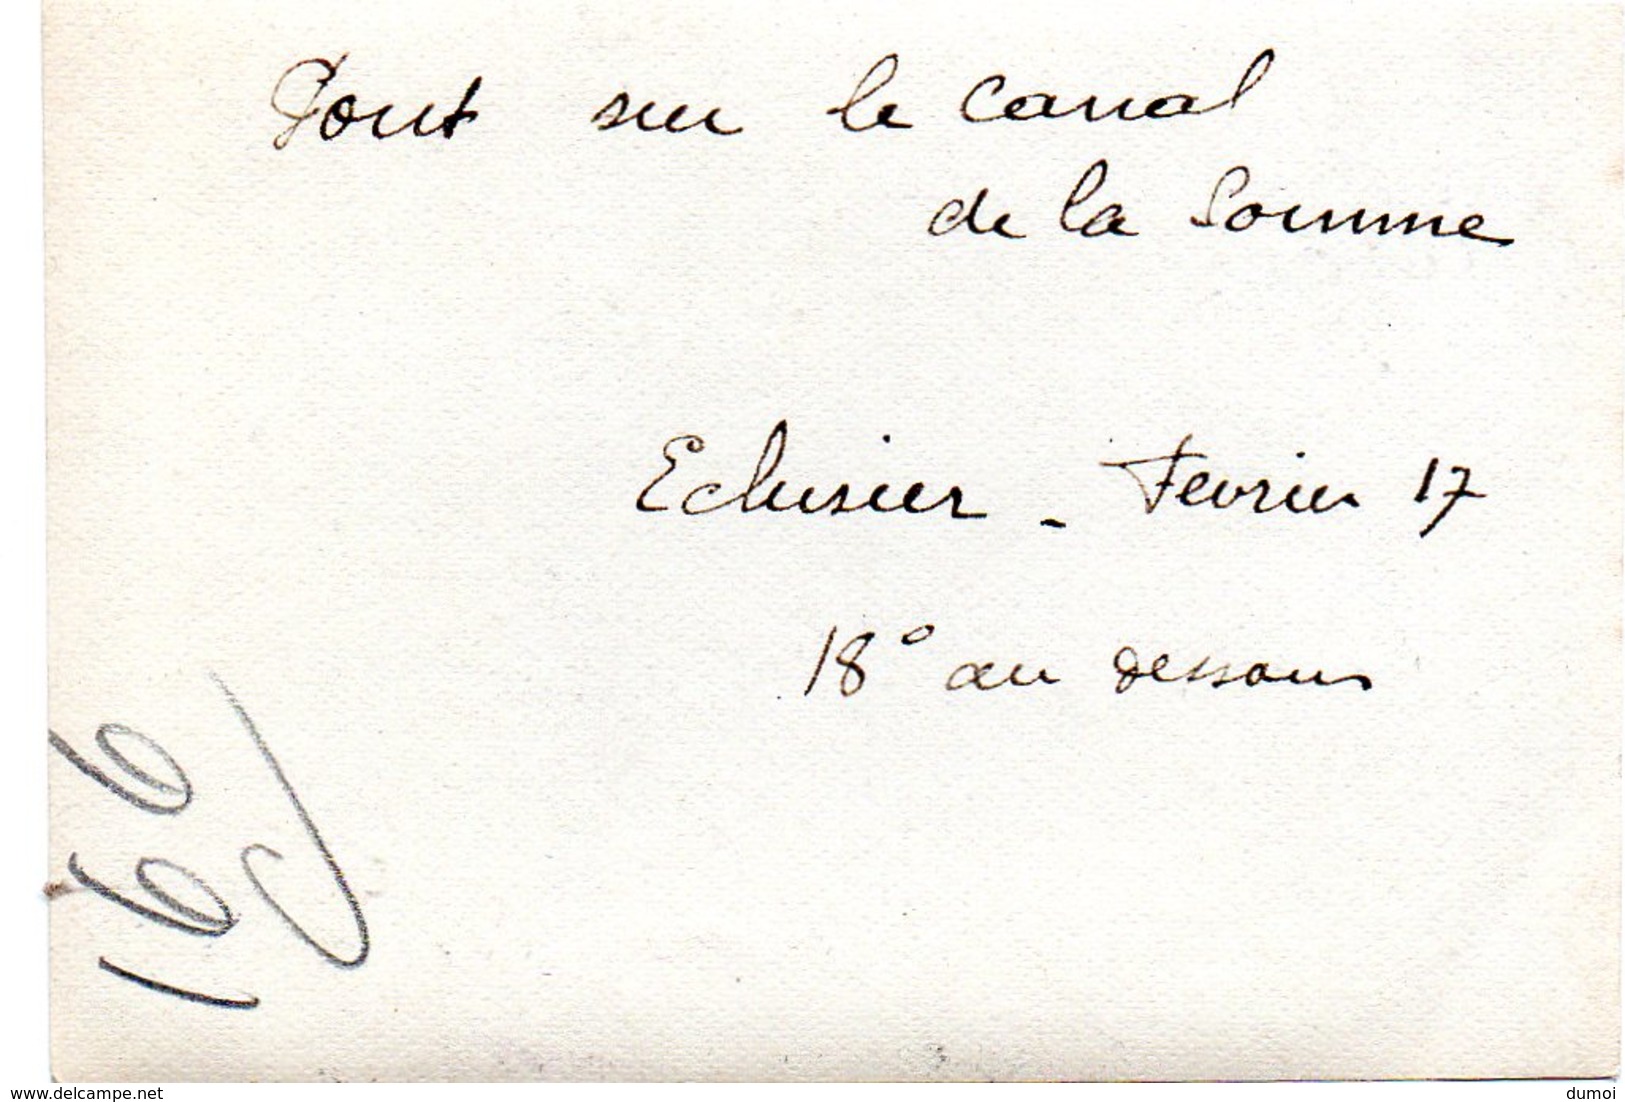 Pont sur le Canal
de la Somme
Eclusier - Fevrier 17
18° au dessous
166
www.delcampe.net
dumoi